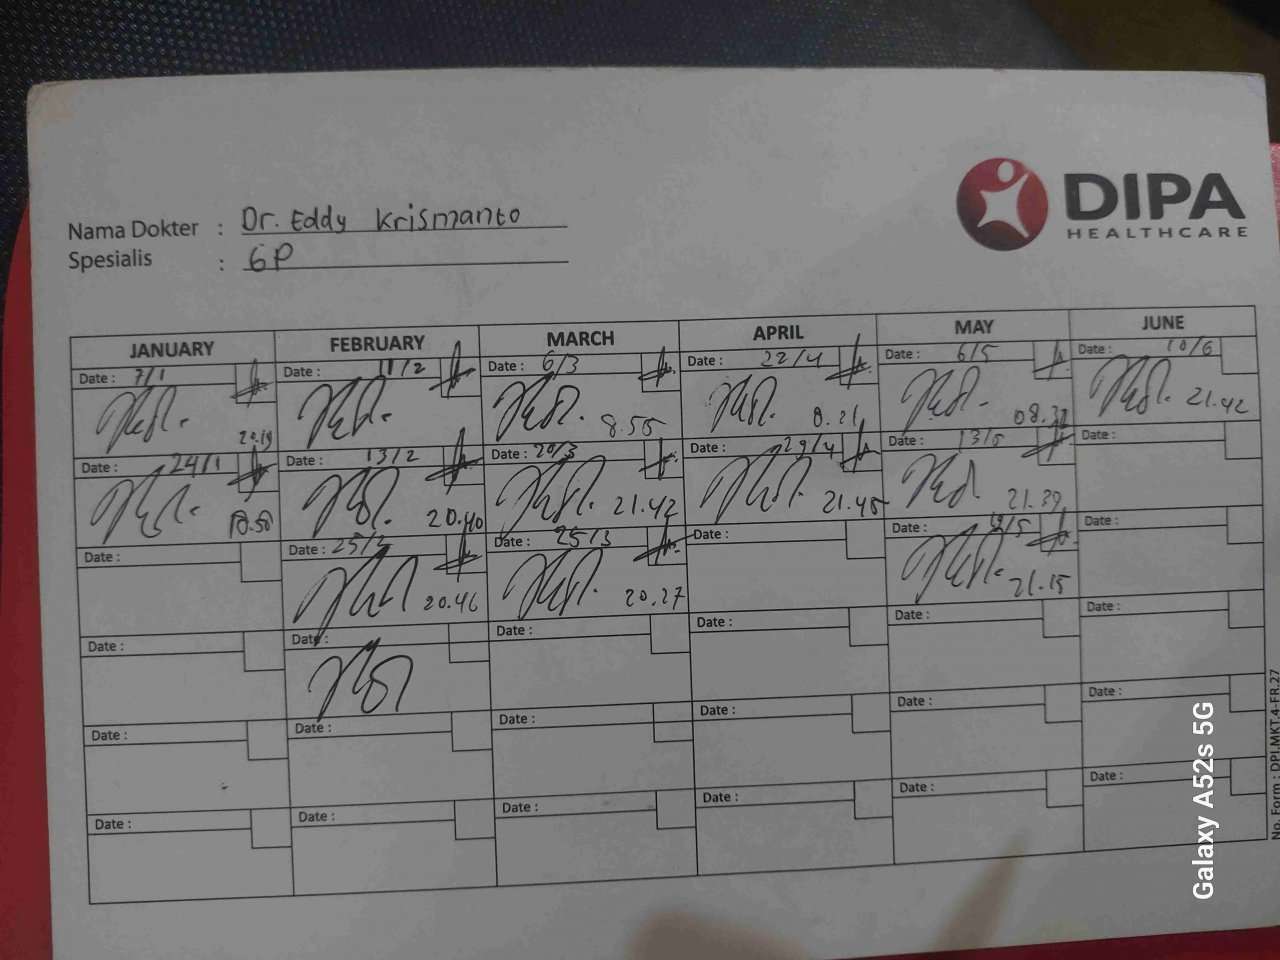 DIPA
HEALTHCARE
Nama Dokter : Dr. Eddy Krismanto
Spesialis : GP
JANUARY FEBRUARY MARCH APRIL MAY JUNE
Date : 7/1 Date : 11/2 Date : 6/3 Date : 22/4 Date : 6/5 Date : 10/6
20.19 8.55 8.21 08.32 21.42
Date : 24/1 Date : 13/2 Date : 20/3 Date : 29/4 Date : 13/5 Date :
20.40 21.42 21.45 21.39
Date : Date : 25/2 Date : 25/3 Date : Date : Date :
20.46 20.27 21.15
Date : Date : Date : Date : Date : Date :
Date : Date : Date : Date : Date : Date :
Date : Date : Date : Date : Date : Date :
No. Form : DPI.MKT.4-FR.27
Galaxy A52s 5G